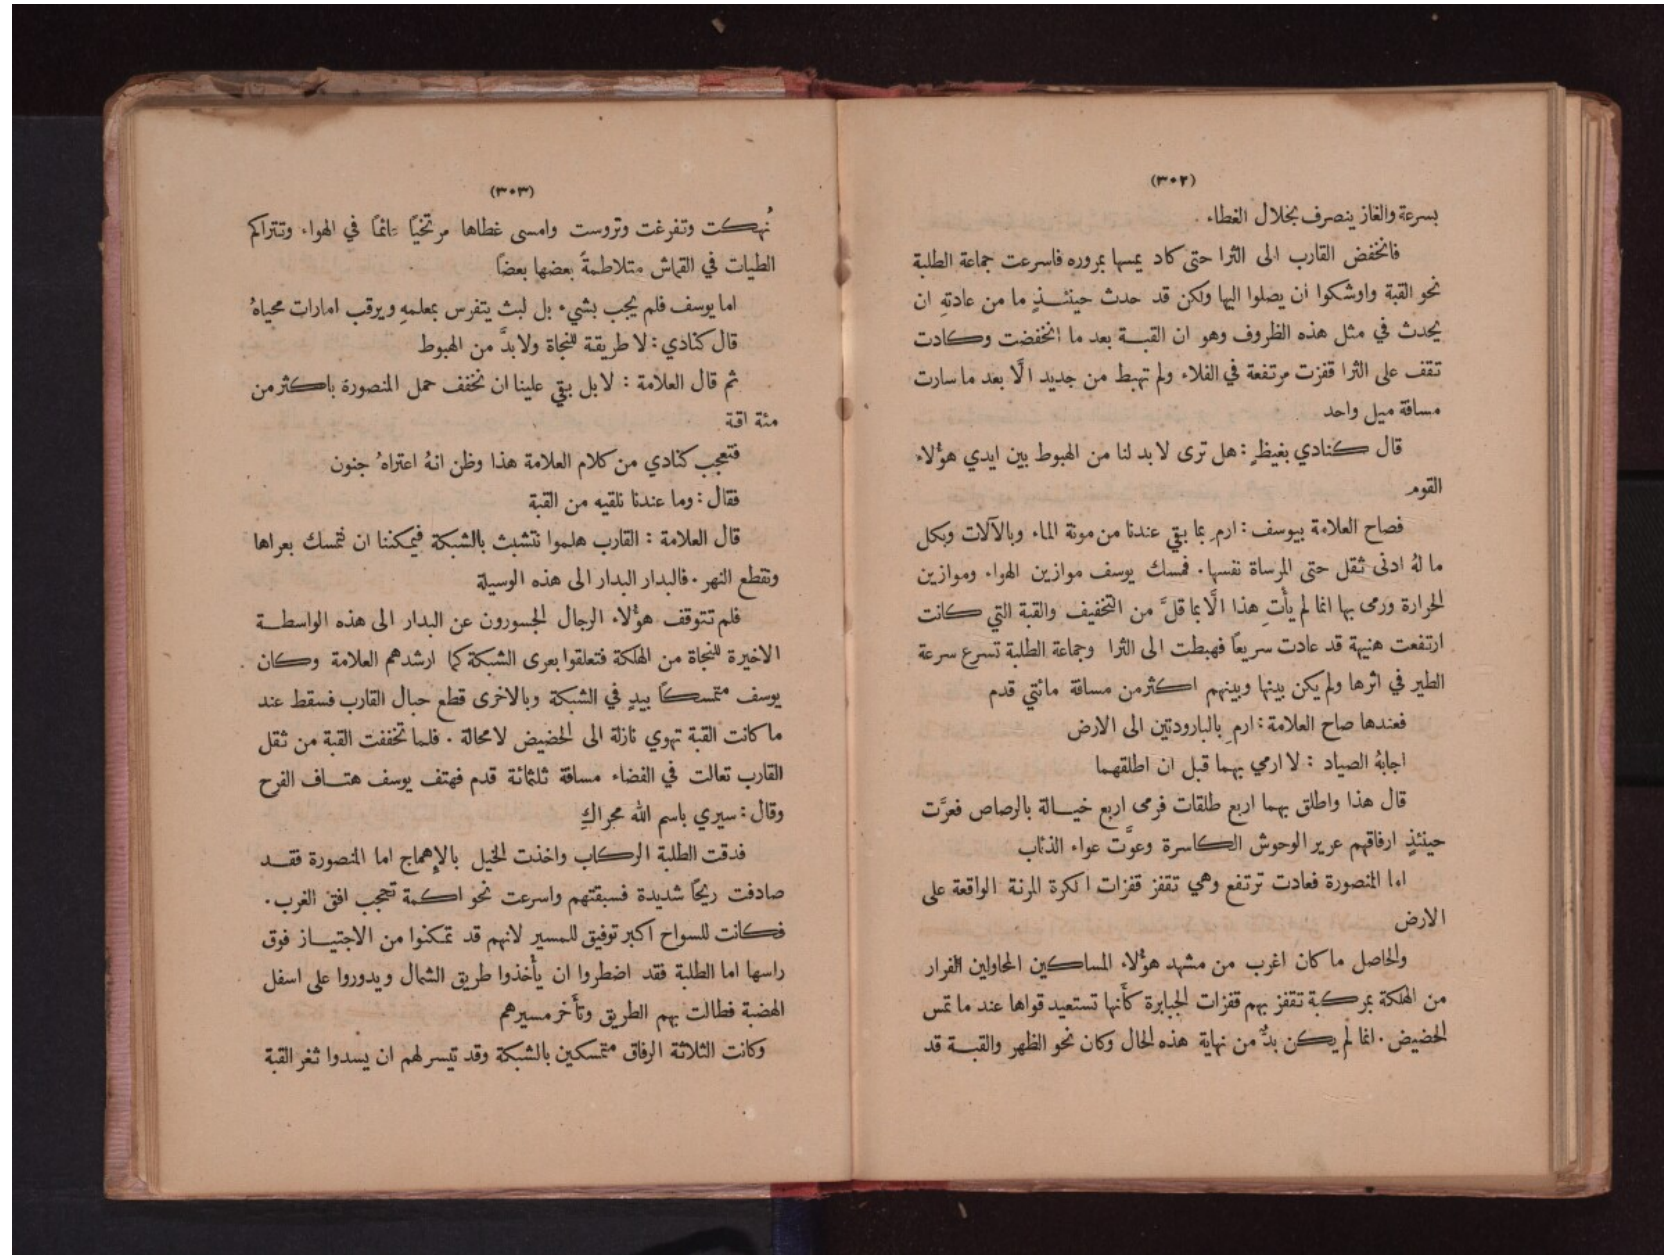 (٣٠٢)
بسرعة والغاز ينصرف بخلال الغطاء .
فانخفض القارب الى الثرا حتى كاد يمسها بمروره فاسرعت جماعة الطلبة
نحو القبة واوشكوا ان يصلوا اليها ولكن قد حدث حينئذٍ ما من عادتهِ ان
يحدث في مثل هذه الظروف وهو ان القبة بعد ما انخفضت وكادت
تقف على الثرا قفزت مرتفعة في الفلاء ولم تهبط من جديد الَّا بعد ما سارت
مسافة ميل واحد
قال كنادي بغيظٍ : هل ترى لا بد لنا من الهبوط بين ايدي هؤلاء
القوم
فصاح العلامة بيوسف : ارمِ بما بقي عندنا من مونة الماء وبالآلات وبكل
ما لهُ ادنى ثقل حتى المرساة نفسها . فمسك يوسف موازين الهواء وموازين
الحرارة ورمى بها انما لم يأتِ هذا الَّا بما قلَّ من التخفيف والقبة التي كانت
ارتفعت هنيهة قد عادت سريعًا فهبطت الى الثرا وجماعة الطلبة تسرع سرعة
الطير في اثرها ولم يكن بينها وبينهم اكثر من مسافة مائتي قدم
فعندها صاح العلامة : ارمِ بالبارودتين الى الارض
اجابهُ الصياد : لا ارمي بهما قبل ان اطلقهما
قال هذا واطلق بهما اربع طلقات فرمى اربع خيالة بالرصاص فعرَّت
حينئذٍ ارفاقهم عرير الوحوش الكاسرة وعوَّت عواء الذئاب
اما المنصورة فعادت ترتفع وهي تقفز قفزات الكرة المرنة الواقعة على
الارض
والحاصل ما كان اغرب من مشهد هؤلاء المساكين المحاولين الفرار
من الهلكة بمركبة تقفز بهم قفزات الجبابرة كأنها تستعيد قواها عند ما تمس
الحضيض . انما لم يكن بدٌّ من نهاية هذه الحال وكان نحو الظهر والقبة قد
(٣٠٣)
نُهكت وتفرغت وتروست وامسى غطاها مرتخيًا في الهواء وتتراكم
الطيات في القماش متلاطمةً بعضها بعضًا
اما يوسف فلم يجب بشيء بل لبث يتفرس بمعلمهِ ويرقب امارات محياهُ
قال كنادي : لا طريقة للنجاة ولا بدَّ من الهبوط
ثم قال العلامة : لا بل بقي علينا ان نخفف حمل المنصورة باكثر من
مئة اقة
فتعجب كنادي من كلام العلامة هذا وظن انهُ اعتراهُ جنون
فقال : وما عندنا نلقيه من القبة
قال العلامة : القارب هلموا نتشبث بالشبكة فيمكننا ان نتمسك بعراها
ونقطع النهر . فالبدار البدار الى هذه الوسيلة
فلم تتوقف هؤلاء الرجال الجسورون عن البدار الى هذه الواسطة
الاخيرة للنجاة من الهلكة فتعلقوا بعرى الشبكة كما ارشدهم العلامة وكان
يوسف متمسكًا بيدٍ في الشبكة وبالاخرى قطع حبال القارب فسقط عند
ما كانت القبة تهوي نازلة الى الحضيض لا محالة . فلما تخففت القبة من ثقل
القارب تعالت في الفضاء مسافة ثلثمائة قدم فهتف يوسف هتاف الفرح
وقال : سيري باسم الله مجراكِ
فدقت الطلبة الركاب واخذت الخيل بالإهماج اما المنصورة فقد
صادفت ريحًا شديدة فسبقتهم واسرعت نحو اكمة تحجب افق الغرب .
فكانت للسواح اكبر توفيق للمسير لانهم قد تمكنوا من الاجتياز فوق
راسها اما الطلبة فقد اضطروا ان يأخذوا طريق الشمال ويدوروا على اسفل
الهضبة فطالت بهم الطريق وتأخر مسيرهم
وكانت الثلاثة الرفاق متمسكين بالشبكة وقد تيسر لهم ان يسدوا ثغر القبة